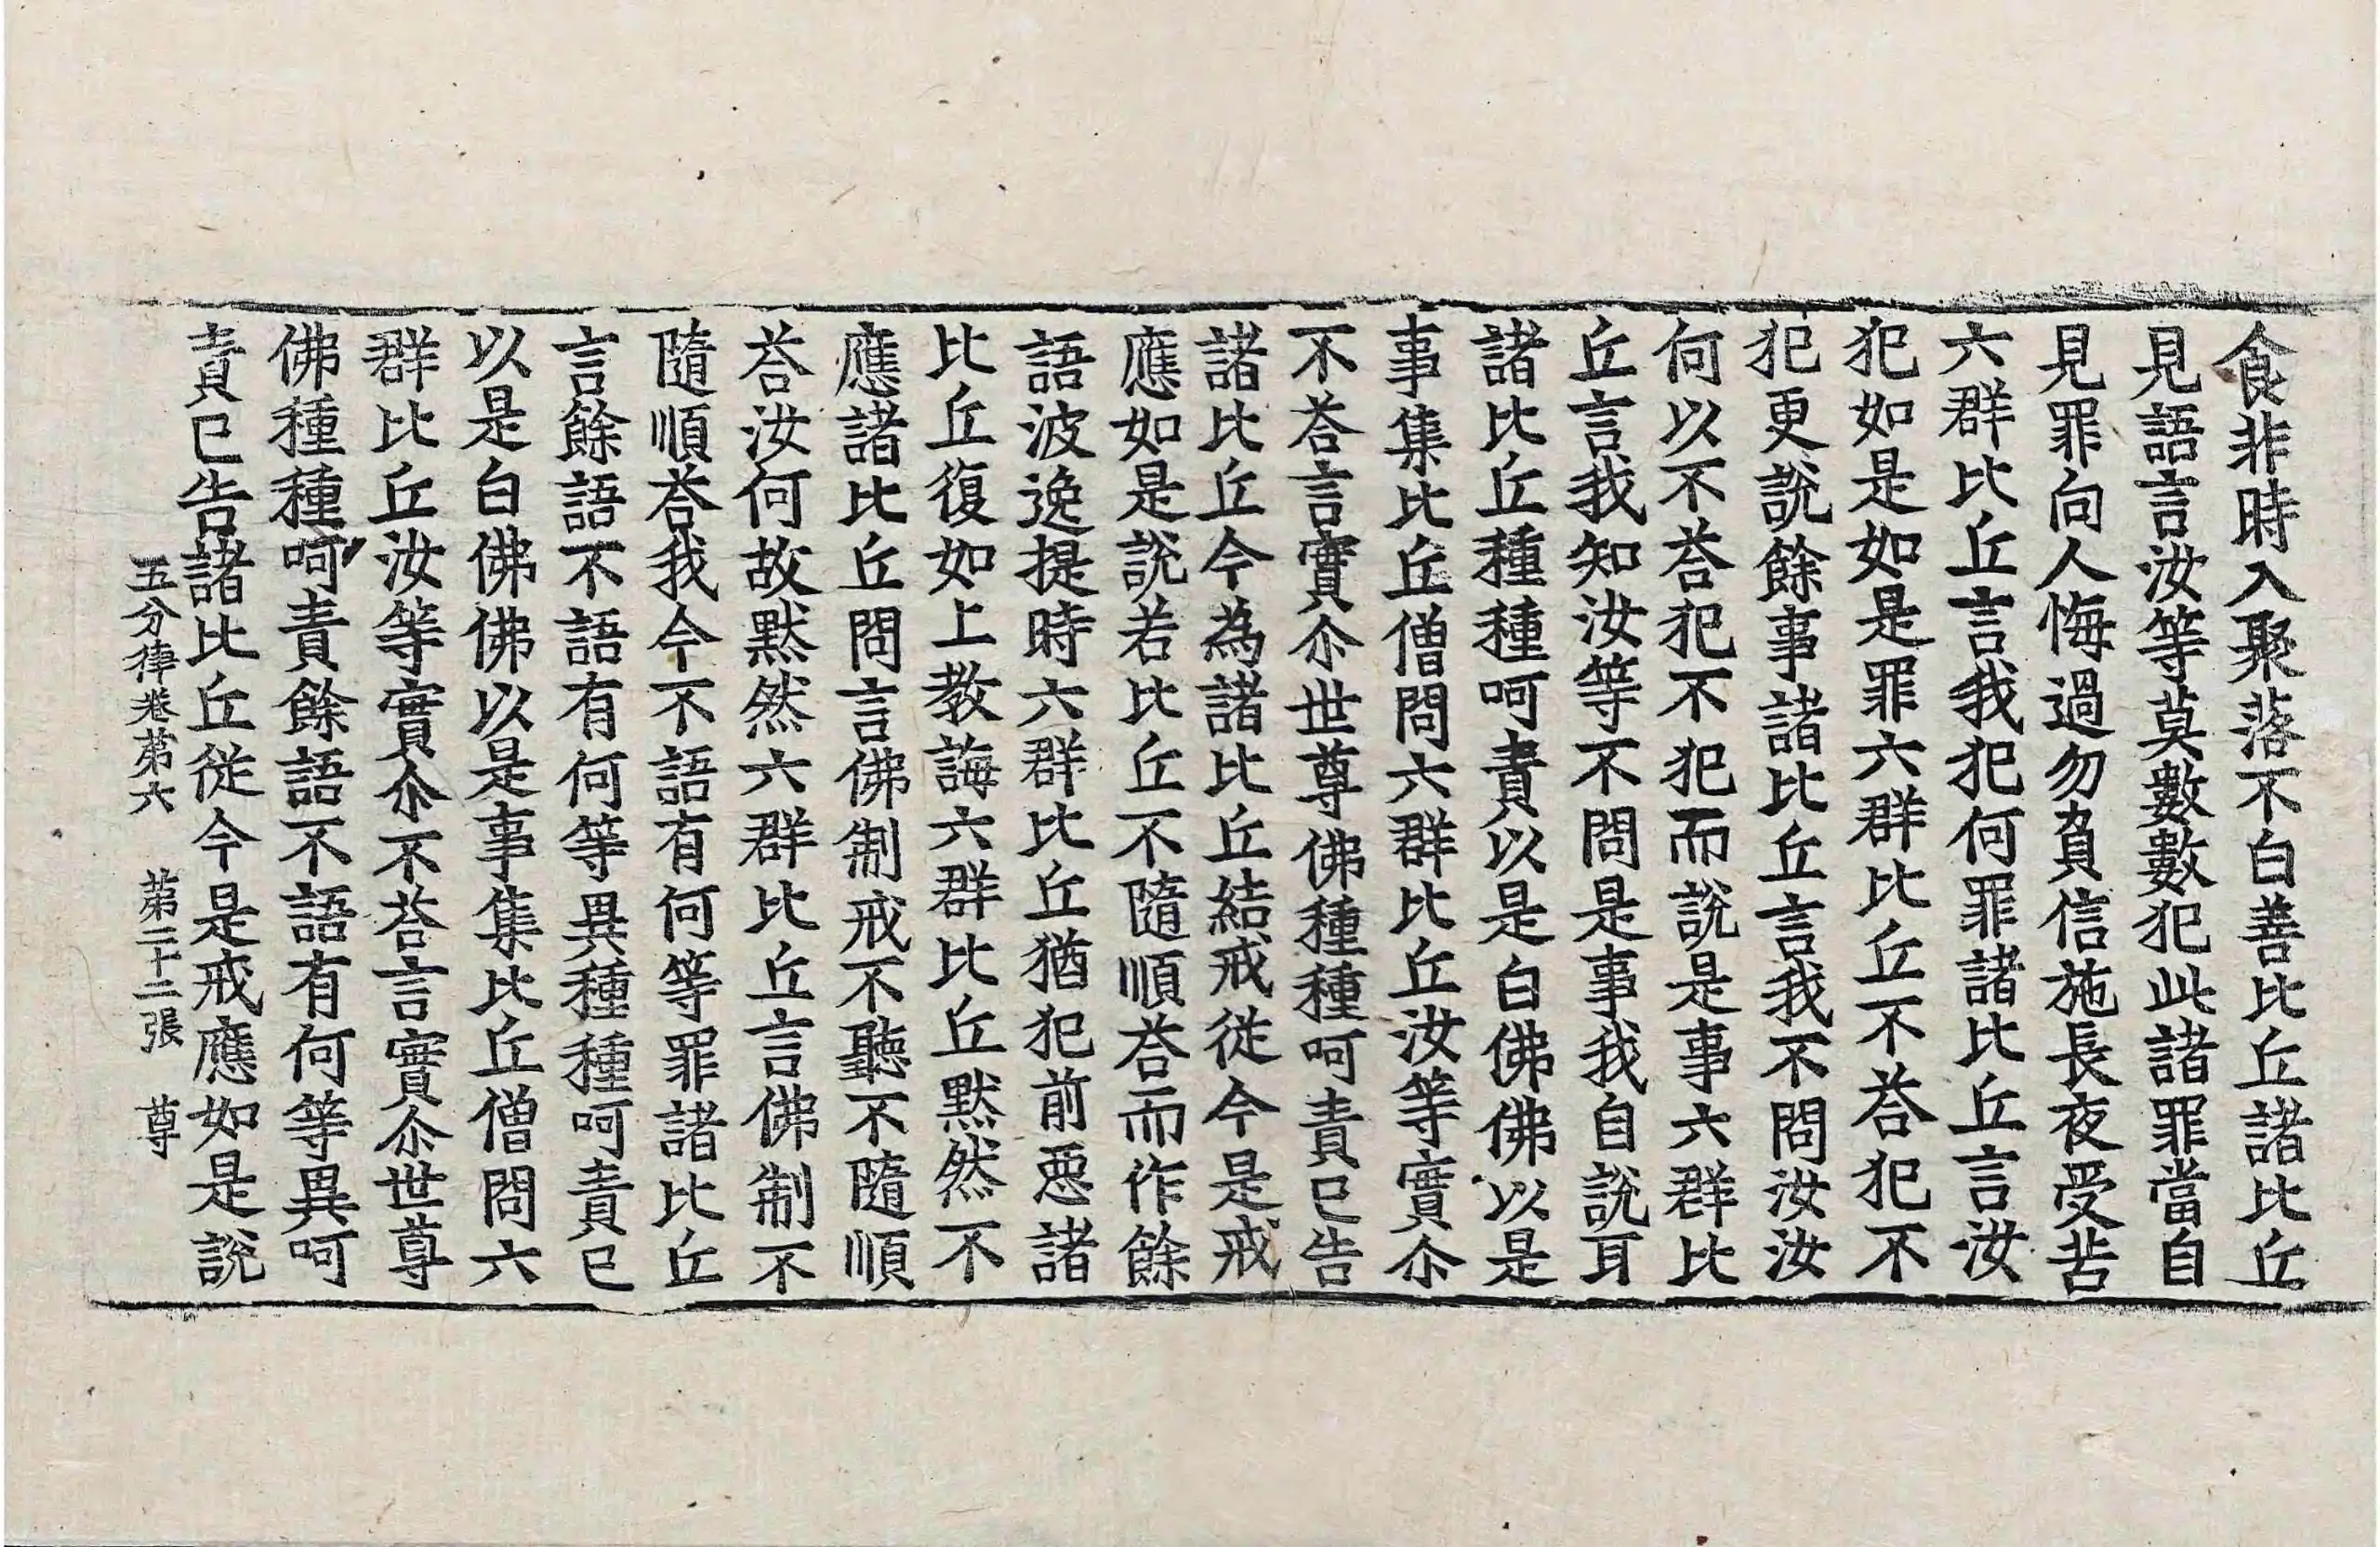 食非時入聚落不白善比丘諸比丘
見語言汝等莫數數犯此諸罪當自
見罪向人悔過勿負信施長夜受苦
六群比丘言我犯何罪諸比丘言汝
犯如是如是罪六群比丘不荅犯不
犯更說餘事諸比丘言我不問汝汝
何以不荅犯不犯而說是事六群比
丘言我知汝等不問是事我自說耳
諸比丘種種呵責以是白佛佛以是
事集比丘僧問六群比丘汝等實尒
不荅言實尒世尊佛種種呵責已告
諸比丘今為諸比丘結戒從今是戒
應如是說若比丘不隨順荅而作餘
語波逸提時六群比丘猶犯前惡諸
比丘復如上教誨六群比丘黙然不
應諸比丘問言佛制戒不聽不隨順
荅汝何故黙然六群比丘言佛制不
隨順荅我今不語有何等罪諸比丘
言餘語不語有何等異種種呵責已
以是白佛佛以是事集比丘僧問六
群比丘汝等實尒不荅言實尒世尊
佛種種呵責餘語不語有何等異呵
責已告諸比丘從今是戒應如是說
五分律卷第六 第二十二張 尊